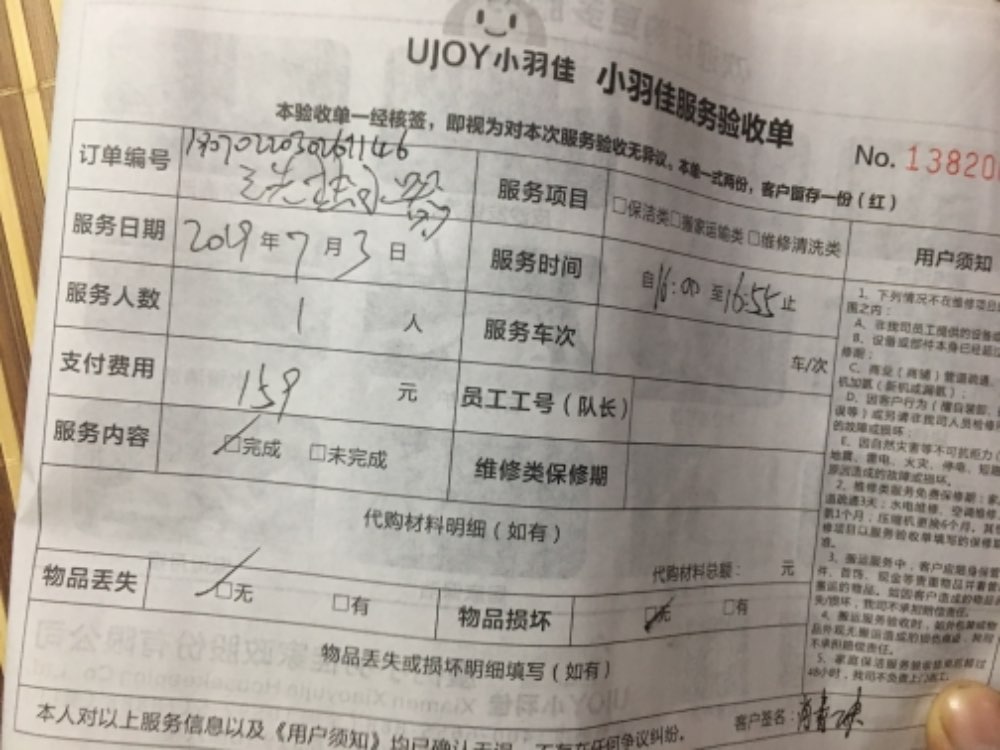 UJOY小羽佳 小羽佳服务验收单
本验收单一经核签，即视为对本次服务验收无异议。本单一式两份，客户留存一份（红）
No. 13820
订单编号
服务项目 □保洁类□搬家运输类 □维修清洗类
服务日期 2019年7月3日
服务时间 自16:00至16:55止
服务人数 1 人
服务车次 车/次
支付费用 159 元
员工工号（队长）
服务内容 □完成 □未完成
维修类保修期
代购材料明细（如有）
代购材料总额： 元
物品丢失 □无 □有
物品损坏 □无 □有
物品丢失或损坏明细填写（如有）
本人对以上服务信息以及《用户须知》均已确认无误，不存在任何争议纠纷。
客户签名：
用户须知
1、下列情况不在维修项目
围之内：
A、非我司员工提供的设备
B、设备或部件本身已经超
修期；
C、商业（商铺）管道疏通、
机加氨（新机或漏氨）；
D、因客户行为（擅自装卸、
误等）或另请非我司人员检修
的故障或损坏；
E、因自然灾害等不可抗拒力（
地震、雷电、火灾、停电、短
原因造成的故障或损坏。
2、维修类服务免费保修期：
道疏通3天；水电维修、空调维修、
氨1个月；压缩机更换6个月。其
修项目以服务验收单填写的保修
准。
3、搬运服务中，客户应随身保管
件、首饰、现金等贵重物品并
搬运的物品。如因客户造成的物品
失/损坏，我司不承担赔偿责任。
4、搬运服务验收时，如外包装或物
品外观无搬运造成的损伤痕迹，我司
不承担赔偿责任。
5、家庭保洁服务验收结束后超过
48小时，我司不免费上门返工。